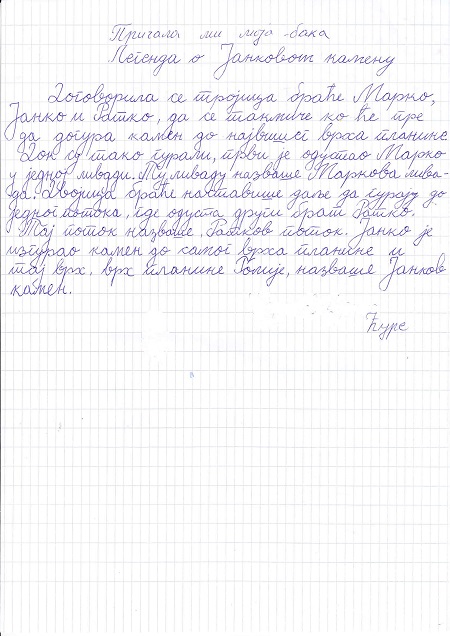 Причала ми моја бака
Легенда о Јанковом камену
Договорила се тројица браће Марко,
Јанко и Ратко, да се такмиче ко ће пре
да догура камен до највишег врха планине
Док су тако гурали, први је одустао Марко
у једној ливади. Ту ливаду назваше Маркова лива-
да. Двојица браће наставише даље да гурају до
једног потока, где одуста други брат Ратко.
Тај поток назваше, Ратков поток. Јанко је
изгурао камен до самог врха планине и
тај врх, врх планине Голије, назваше Јанков
камен.